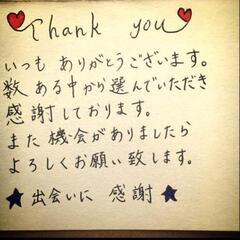 Thank you
いつも ありがとうございます。
数 ある中から選んでいただき
感謝しております。
また 機会がありましたら
よろしくお願い致します。
★ 出会いに 感謝 ★